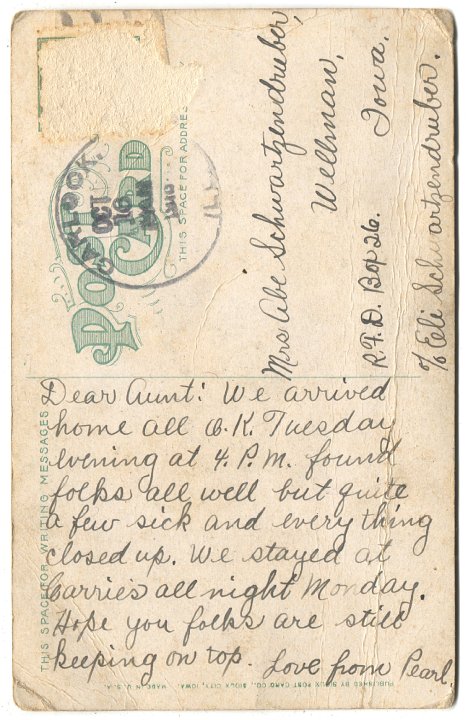 Dear Aunt: We arrived
home all O.K. Tuesday
evening at 4. P.M. found
folks all well but quite
a few sick and every thing
closed up. We stayed at
Carrie's all night Monday.
Hope you folks are still
keeping on top. Love from Pearl.
Mrs Abe Schwartzendruber,
Wellman,
Iowa.
R.F.D. Box 26.
% Eli Schwartzendruber.
POST CARD
THIS SPACE FOR ADDRESS
THIS SPACE FOR WRITING MESSAGES
PUBLISHED BY SIOUX POST CARD CO., SIOUX CITY, IOWA. MADE IN U.S.A.